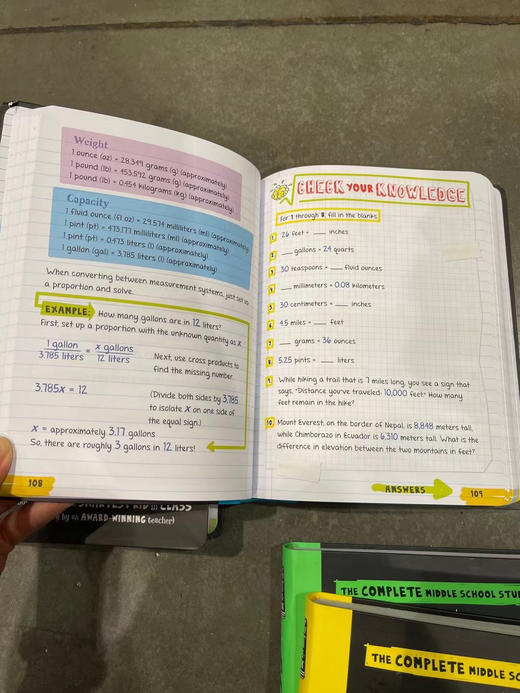 Weight
1 ounce (oz) = 28.349 grams (g) (approximately)
1 pound (lb) = 453.592 grams (g) (approximately)
1 pound (lb) = 0.454 kilograms (kg) (approximately)
Capacity
1 fluid ounce (fl oz) = 29.574 milliliters (ml) (approximately)
1 pint (pt) = 473.177 milliliters (ml) (approximately)
1 pint (pt) = 0.473 liters (l) (approximately)
1 gallon (gal) = 3.785 liters (l) (approximately)
When converting between measurement systems, just set up
a proportion and solve.
EXAMPLE: How many gallons are in 12 liters?
First, set up a proportion with the unknown quantity as x
1 gallon / 3.785 liters = x gallons / 12 liters
Next, use cross products to
find the missing number.
3.785x = 12
(Divide both sides by 3.785
to isolate x on one side of
the equal sign.)
x = approximately 3.17 gallons
So, there are roughly 3 gallons in 12 liters!
108
CHECK YOUR KNOWLEDGE
For 1 through 8, fill in the blanks.
1. 26 feet = ___ inches
2. ___ gallons = 24 quarts
3. 30 teaspoons = ___ fluid ounces
4. ___ millimeters = 0.08 kilometers
5. 30 centimeters = ___ inches
6. 4.5 miles = ___ feet
7. ___ grams = 36 ounces
8. 5.25 pints = ___ liters
9. While hiking a trail that is 7 miles long, you see a sign that
says, "Distance you've traveled: 10,000 feet." How many
feet remain in the hike?
10. Mount Everest, on the border of Nepal, is 8,848 meters tall,
while Chimborazo in Ecuador is 6,310 meters tall. What is the
difference in elevation between the two mountains in feet?
ANSWERS
109
SMARTEST KID IN CLASS
by an AWARD-WINNING teacher)
THE COMPLETE MIDDLE SCHOOL
THE COMPLETE MIDDLE